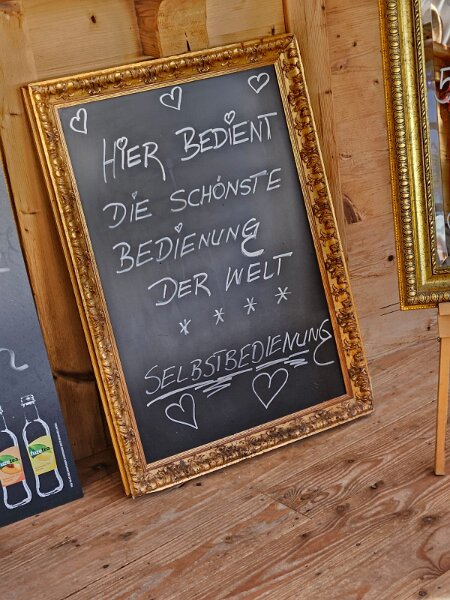 HIER BEDIENT
DIE SCHÖNSTE
BEDIENUNG
DER WELT
* * * *
SELBSTBEDIENUNG